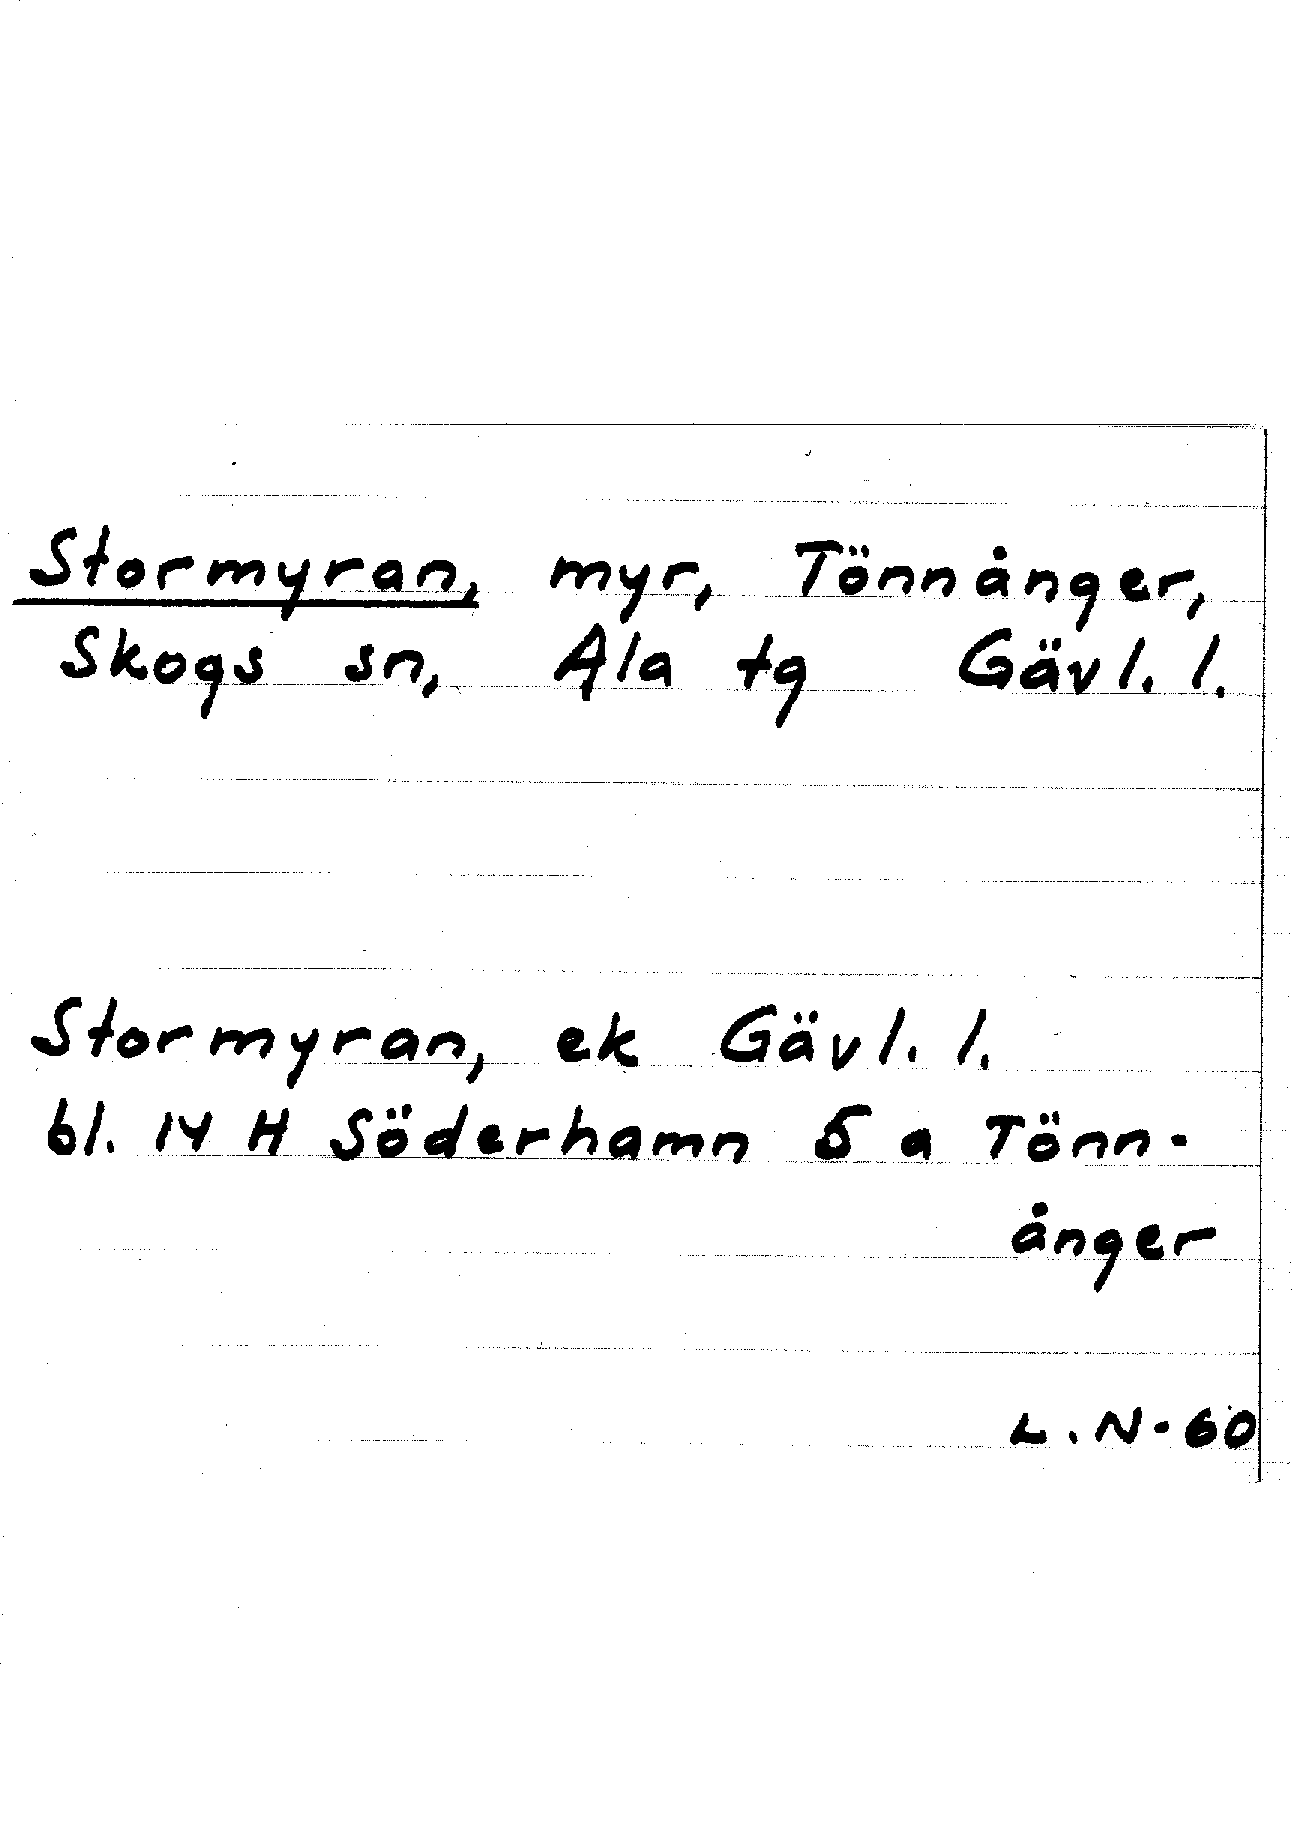 Stormyran, myr, Tönnånger,
Skogs sn, Ala tg Gävl. l.
Stormyran, ek Gävl. l.
bl. 14 H Söderhamn 5 a Tönn-
ånger
L. N-60